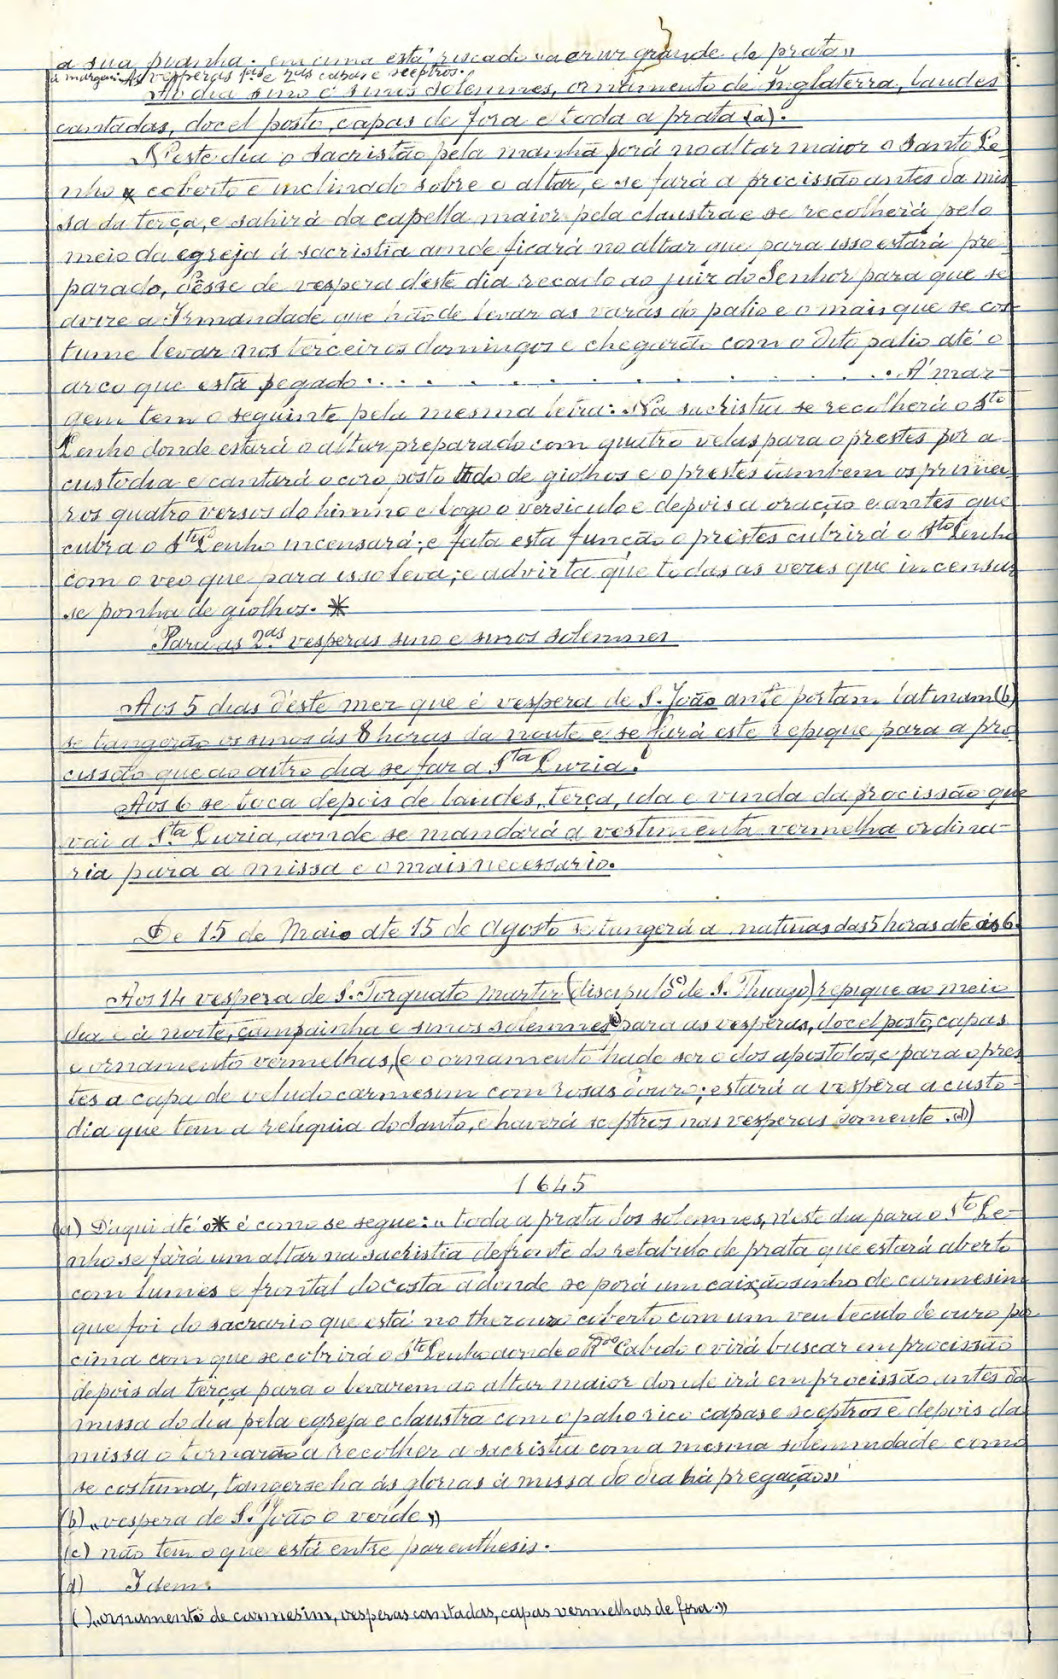 a sua peanha. em cima está riscado «a crus grande de prata»
á margem: As vesperas 1.as e 2.as capas e sceptros.
Ao dia sino e sinos solemnes, ornamento de Inglaterra, laudes
cantadas, docel posto, capas de fora e toda a prata (a).
N'este dia o Sacristão pela manhã porá no altar maior o Santo Le-
nho * coberto e inclinado sobre o altar, e se fará a procissão antes da mis
sa da terça, e sahirá da capella maior pela claustra e se recolherá pelo
meio da egreja á sacristia aonde ficará no altar que para isso estará pre
parado, désse de vespera d'este dia recado ao juiz do Senhor para que se
avize a Irmandade que hão de levar as varas do palio e o mais que se cos
tume levar nos terceiros domingos e chegarão com o dito palio até o
arco que está pegado . . . . . . . . . . . . . . . Á mar-
gem tem o seguinte pela mesma letra: Na sacristia se recolherá o S.to
Lenho donde estará o altar preparado com quatro velas para o prestes por a
custodia e cantará o coro posto todo de giolhos e o prestes tambem os primei
ros quatro versos do himno e logo o versiculo e depois a oração e antes que
cubra o S.to Lenho incensará; e fata esta função o prestes cubrirá o S.to Lenho
com o veo que para isso leva; e advirta que todas as vezes que incensar
se ponha de giolhos. *
Para as 2.as vesperas sino e sinos solemnes
Aos 5 dias d'este mez que é vespera de S. João ante portam latinam (b)
se tangerão os sinos ás 8 horas da noute e se fará este repique para a pro
cissão que ao outro dia se far a S.ta Luzia.
Aos 6 se toca depois de laudes, terça, ida e vinda da procissão que
vai a S.ta Luzia, aonde se mandará a vestimenta vermelha ordina-
ria para a missa e o mais necessario.
De 15 de Maio até 15 de Agosto se tangerá a matinas das 5 horas até ás 6.
Aos 14 vespera de S. Torquato martir (discipulo de S. Thiago) (c) repique ao meio
dia e á noite, campainha e sinos solemnes para as vesperas, docel posto, capas
e ornamento vermelhas, (e o ornamento hade ser o dos apostolos, e para o pres
tes a capa de veludo carmesim com rosas d'ouro; estará a vespera a custo-
dia que tem a reliquia do Santo, e haverá sceptros nas vesperas somente. (d))
1645
(a) D'aqui até o * é como se segue: «toda a prata dos solemnes, n'este dia para o S.to Le-
nho se fará um altar na sacristia defronte do retabulo de prata que estará aberto
com lumes e frontal da costa adonde se porá um caixãosinho de carmesim
que foi do sacrario que está no thezouro coberto com um veu tecido de ouro por
cima com que se cobrirá o S.to Lenho aonde o R.do Cabido o virá buscar em procissão
depois da terça para o levarem ao altar maior donde irá em procissão antes da
missa do dia pela egreja e claustra com o palio rico capas e sceptros e depois da
missa o tornarão a recolher a sacristia com a mesma solemnidade como
se costuma, tangerseha ás glorias á missa do dia há pregação»
(b) «vespera de S. João o verde»
(c) não tem o que está entre parenthesis.
(d) Idem.
( ) «ornamento de carmesim, vesperas cantadas, capas vermelhas de fora.»